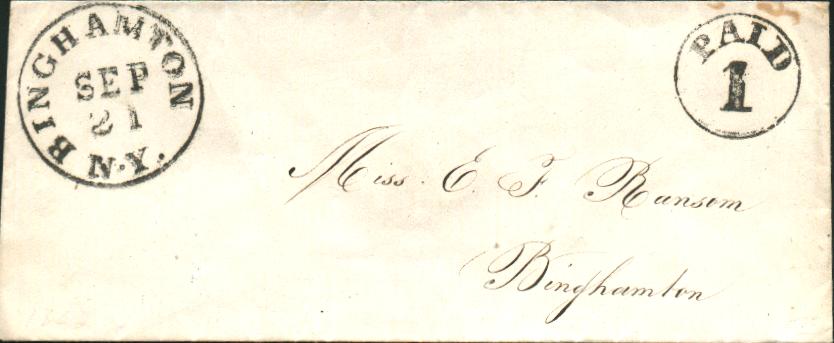 BINGHAMTON
SEP
21
N.Y.
PAID
1
Miss. E. F. Ransom
Binghamton